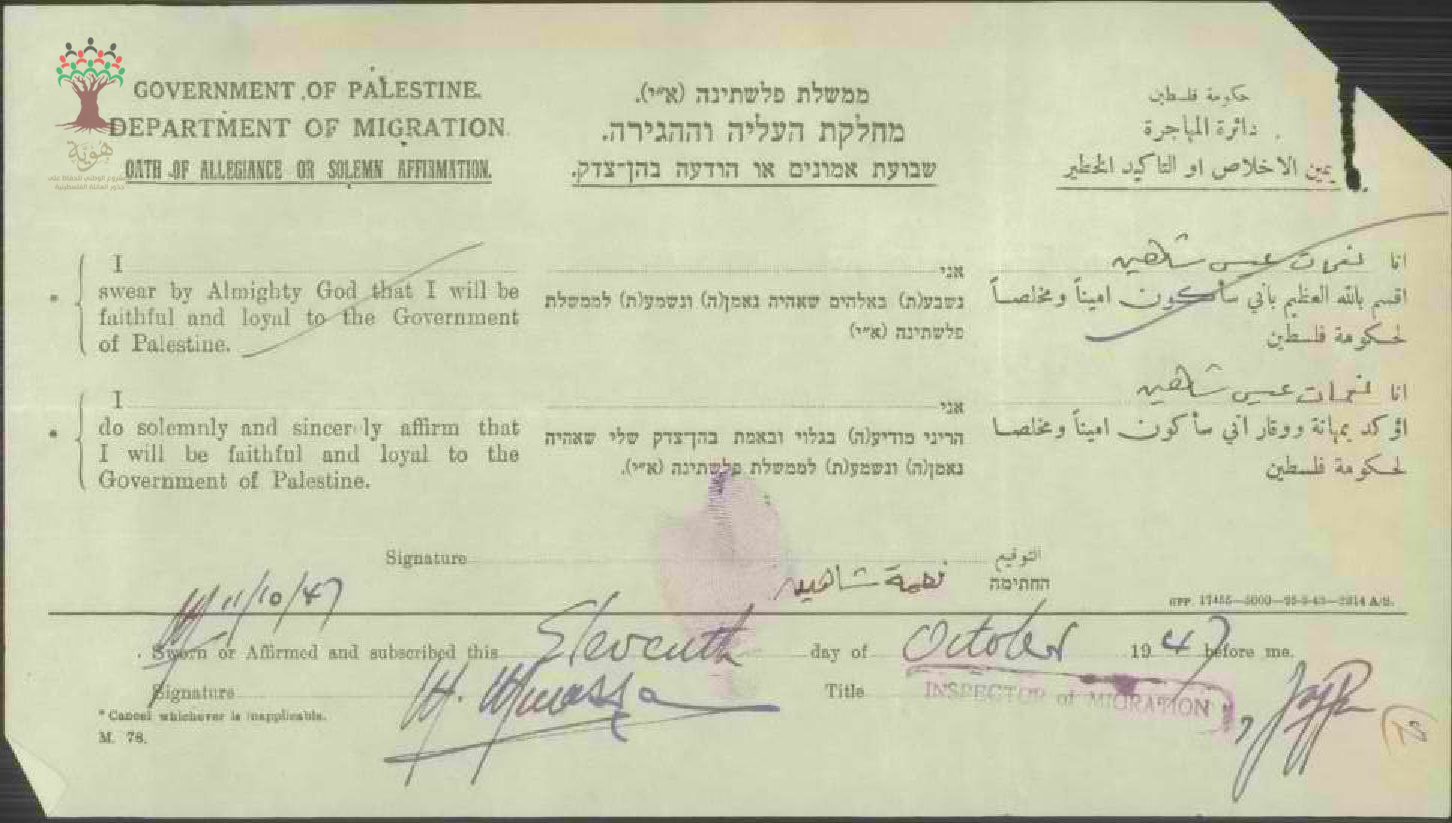 GOVERNMENT OF PALESTINE.
DEPARTMENT OF MIGRATION.
OATH OF ALLEGIANCE OR SOLEMN AFFIRMATION.
ממשלת פלשתינה (א״י).
מחלקת העליה וההגירה.
שבועת אמונים או הודעה בהן־צדק.
حكومة فلسطين
دائرة المهاجرة
يمين الاخلاص او التاكيد الخطير
هوية
I
swear by Almighty God that I will be
faithful and loyal to the Government
of Palestine.
אני
נשבע(ת) באלהים שאהיה נאמן(ה) ונשמע(ת) לממשלת
פלשתינה (א״י)
انا نعمات عيسى شاهين
اقسم بالله العظيم بأني سأكون اميناً ومخلصاً
لحكومة فلسطين
I
do solemnly and sincerely affirm that
I will be faithful and loyal to the
Government of Palestine.
אני
הריני מודיע(ה) בגלוי ובאמת בהן־צדק שלי שאהיה
נאמן(ה) ונשמע(ת) לממשלת פלשתינה (א״י).
انا نعمات عيسى شاهين
اؤكد بمهانة ووقار أني سأكون اميناً ومخلصا
لحكومة فلسطين
Signature
التوقيع
החתימה
نعمة شاهين
GPP. 17455—5000—25-3-43—2314 A/S.
11/10/47
Sworn or Affirmed and subscribed this Eleventh day of October 1947 before me.
Signature
Title INSPECTOR of MIGRATION
* Cancel whichever is inapplicable.
M. 78.